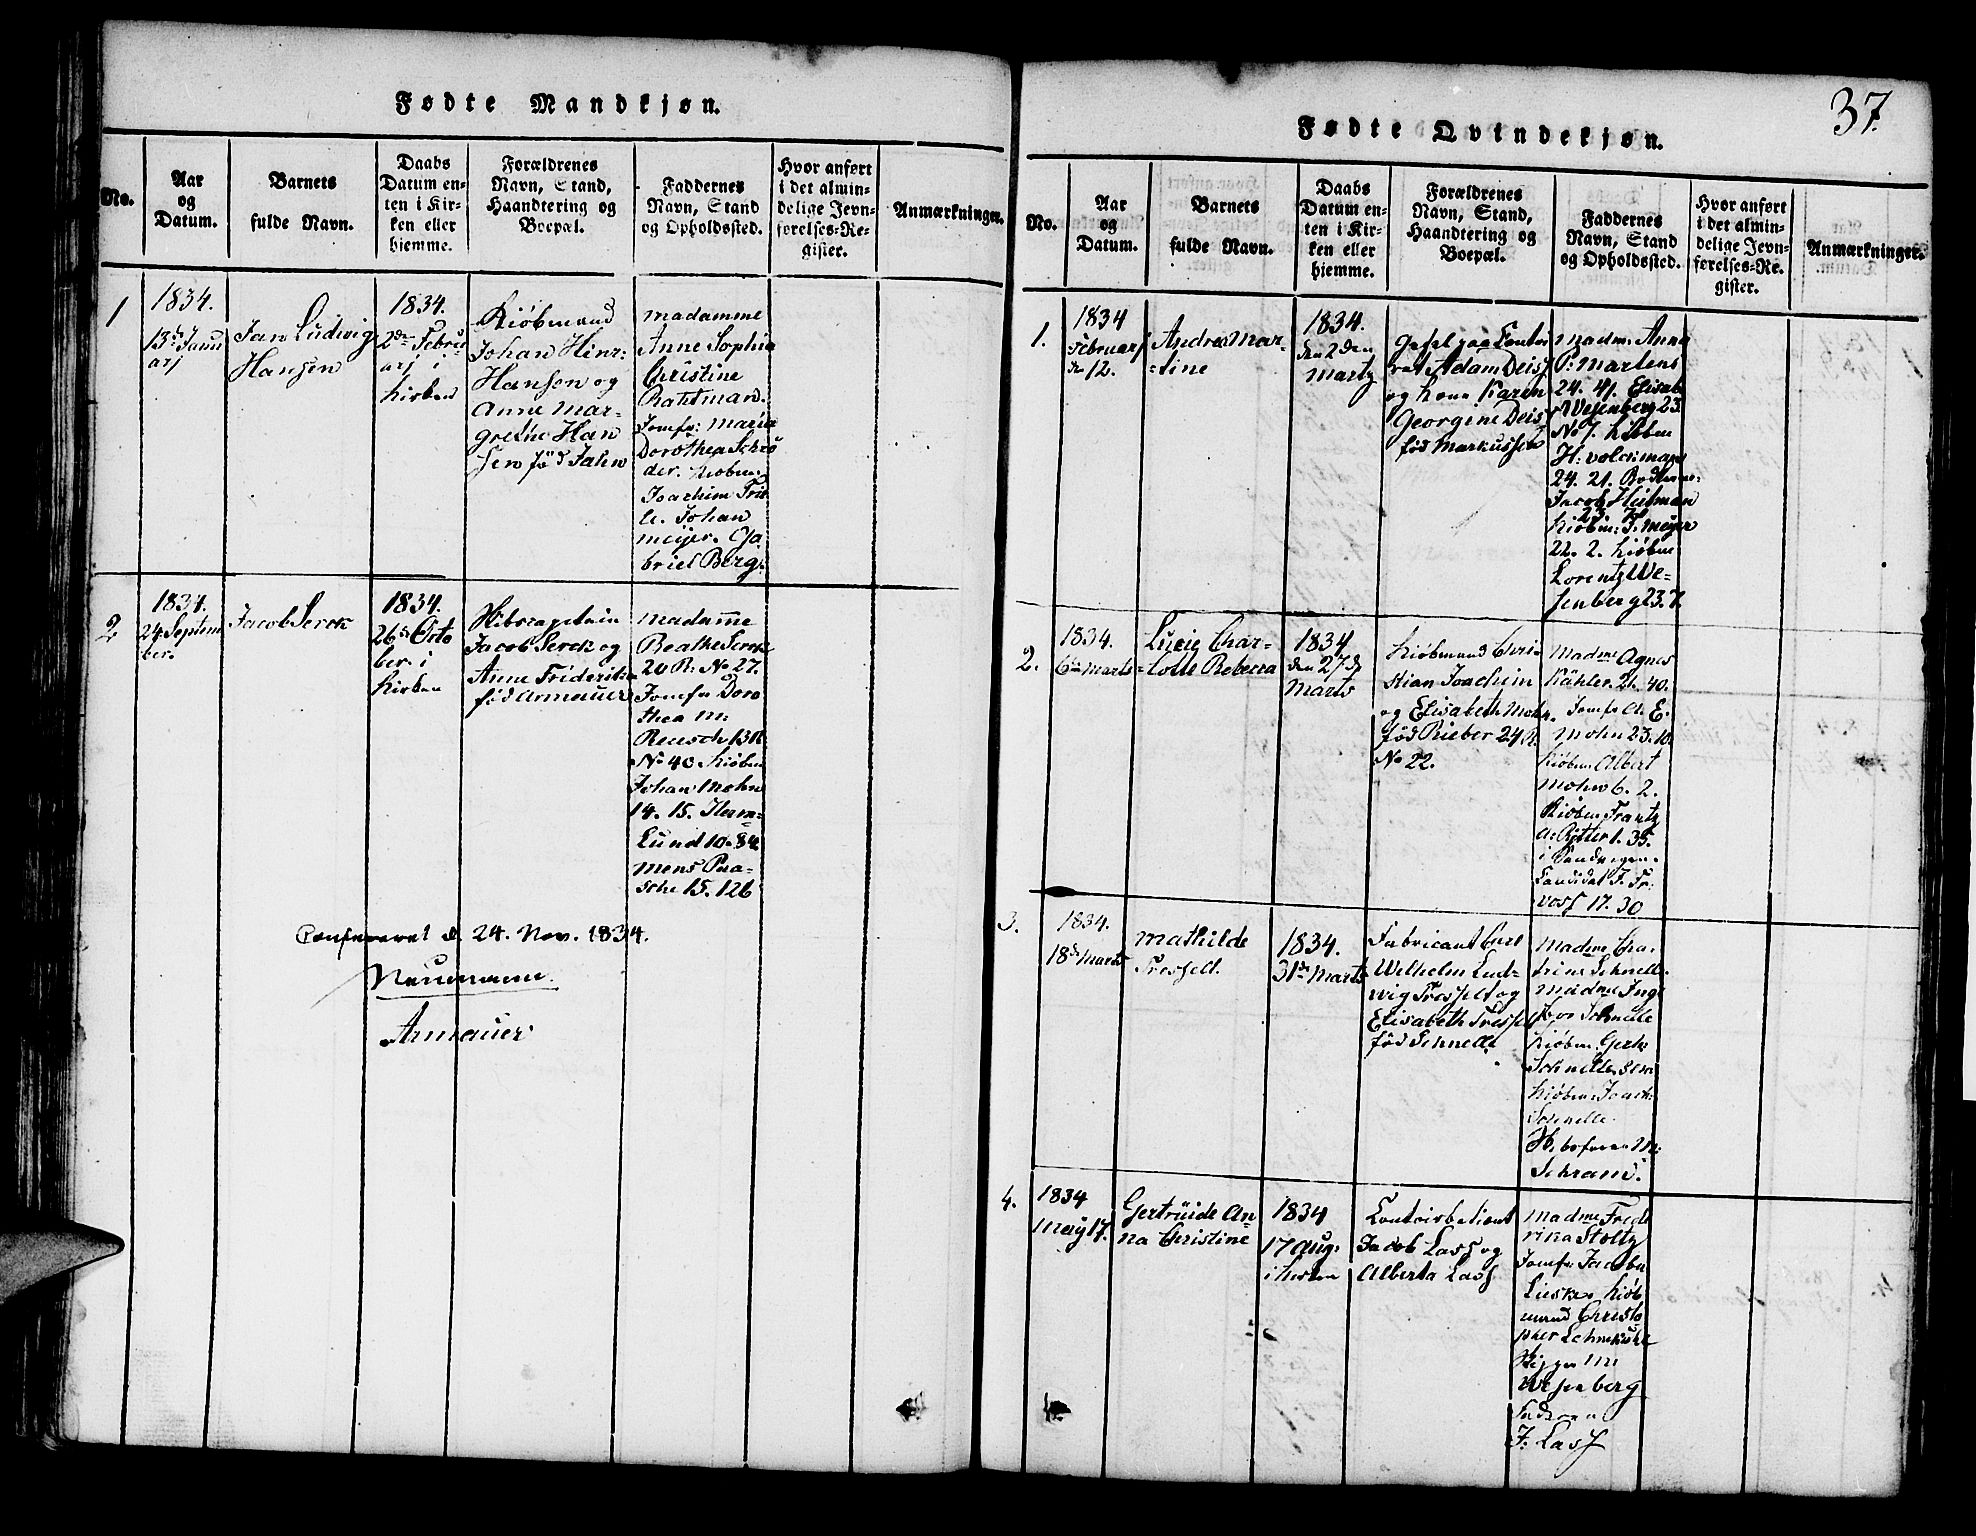 Fødte Mandkjøn.
No.
Aar
og
Datum.
Barnets
fulde Navn.
Daabs
Datum en-
ten i Kir-
ken eller
hjemme.
Forældrenes
Navn, Stand,
Haandtering og
Boepæl.
Faddernes
Navn, Stand
og Opholdssted.
Hvor anført
i det almin-
delige Jevn-
førelses-Re-
gister.
Anmærkninger.
1
1834.
13de Janu
arj
Jan Ludvig
Hansen
1834.
2den Febru
arj i
Kirken
Kiøbmand
Johan Hinr:
Hansen og
Anne Mar-
grethe Han
sen fød Jahn
Madamme
Anne Sophia
Christine
Rahtman.
Jomfr: Maria
Dorothea Schrö
der. Kiøbm:
Joachim
Johan
Meijer. Ga
briel Berg.
2
1834.
24 Septem
ber.
Jacob Serck
1834.
26de Octo
ber i
Kirken
Jacob Serck og
Anne Friderik
fød Armauer
Madamme
Beathe Serck
20 R: No 27.
Jomfr Doro
thea M:
Reusch 13 R
No 40. Kiøbm
Johan Mohn
14. 15. Herm
Lund 10. 84
Mens Paa-
sche 15. 126
24. Nov. 1834.
Neumann.
Armauer
37.
Fødte Qvindekjøn.
No.
Aar
og
Datum.
Barnets
fulde Navn.
Daabs
Datum en-
ten i Kir-
ken eller
hjemme.
Forældrenes
Navn, Stand,
Haandtering og
Boepæl.
Faddernes
Navn, Stand
og Opholdssted.
Hvor anført
i det almin-
delige Jevn-
førelses-Re-
gister.
Anmærkninger.
1.
1834
Februarj
12.
Andrea Mar-
tine
1834.
den 2den
Martz
Adam Deisz
og Kone Karen
Georgine Deis
fød Markussen
Madm: Anna
P: Martens
24. 41. Elisab
Wesenberg 23.
No 7. Kiöbm
H: Volckmar
24. 21.
Jacob Heitman
Kiøbm: J: Meyer
22. 2. Kiøbm
Lorentz We-
senberg 23. 7.
2.
1834.
6te Marts
Lucie Char-
lotte Rebecca
1834
den 27de
Marts
Kiøbmand Chri
stian Joachim
og Elisabeth Mohn.
fød Rieber 24 R.
No 22.
Madme Agnes
Kähler. 21. 40.
Jomfr A. E.
Mohn 23. 10.
Kiøbm Albert
Mohn 6. 2.
Kiøbm Frantz
A: Ritter 1. 35.
i Sandvigen.
Candidat J. Fr.
Voss 17. 30
3.
1834.
18de Marts
Mathilde
Tresselt.
1834.
31te Marts
Fabricant Carl
Wilhelm Lud-
wig Tresselt og
Elisabeth Tresselt
fød Schnelle
Madme Cha-
trine Schnelle
Madme Inge
bor Schnelle
Kiøbm Gerh:
Schnelle, Sen
Kiøbm: Joach:
Schnelle.
Schram.
4.
1834
May 17.
Gertruide An-
na Christine
1834
17 Aug:
i Kirken
Jacob Lass og
Alberta Lass
Madme Frede
rika Stoltz
Jomfr: Jacobn
Lieske. Kiøb
mand Christo
pher Schnekühle
M
Wesenberg
Faderen
J. Lass